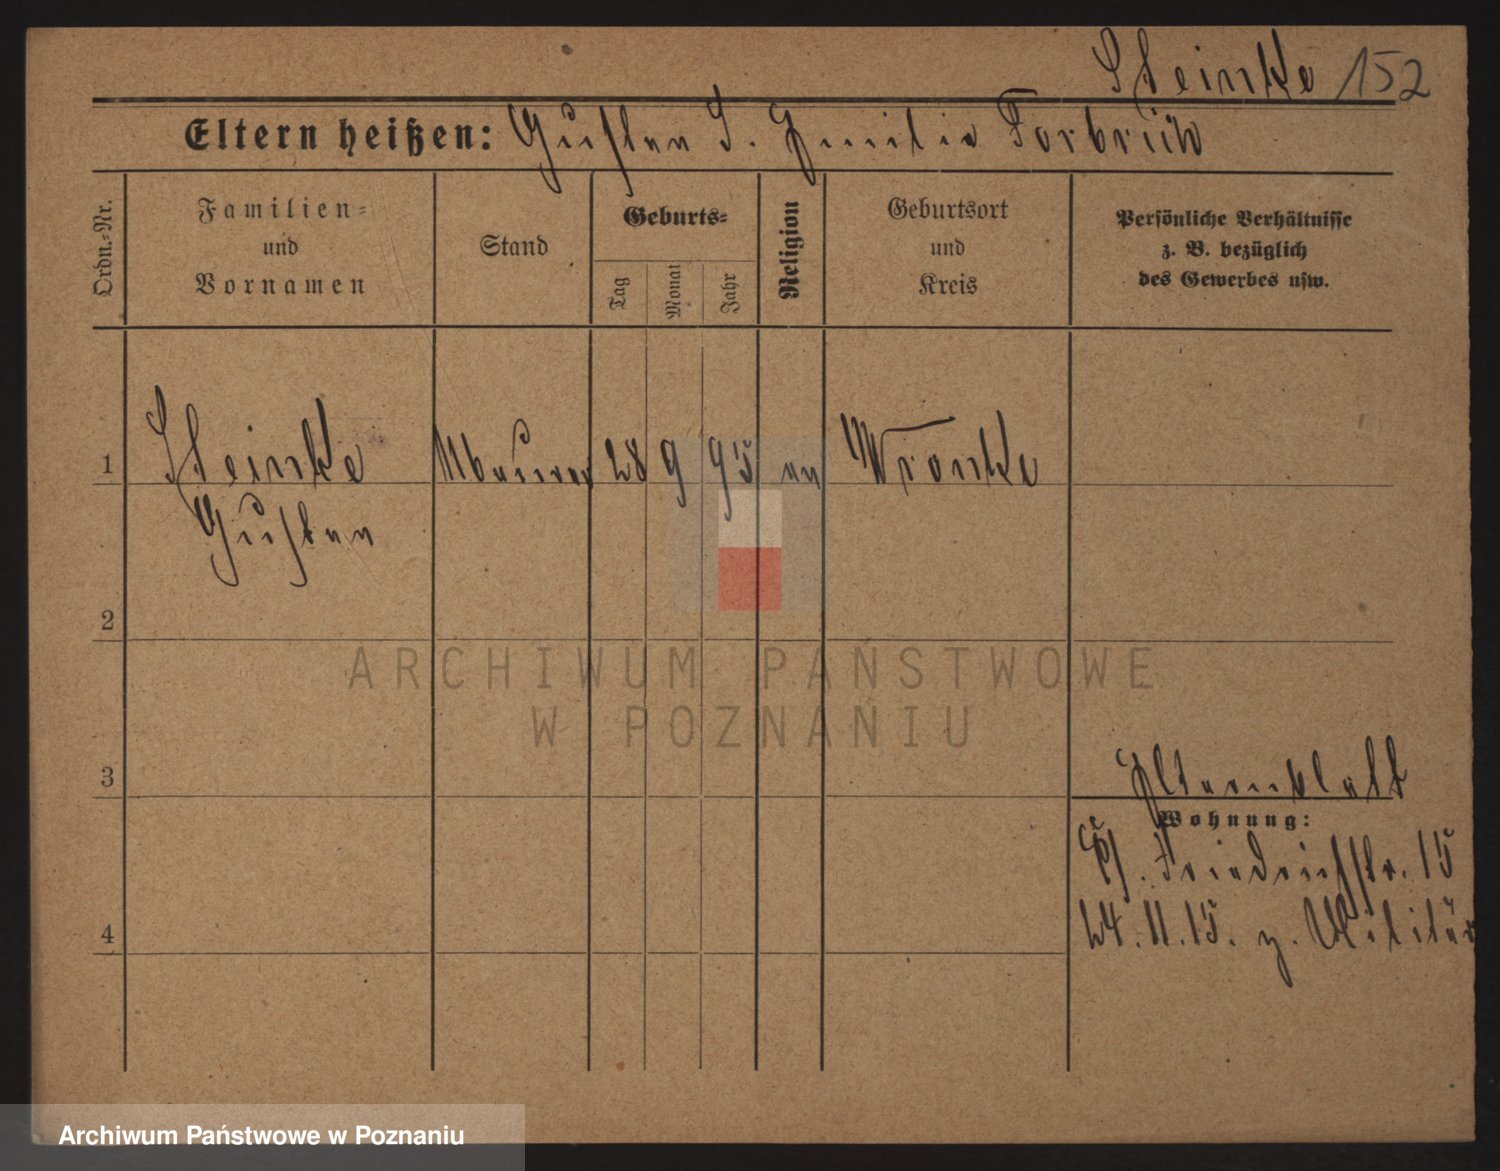 Steinke 152
Eltern heißen: Gustav S. Emilie Forbrich
Ordn.-Nr.
Familien-
und
Vornamen
Stand
Geburts-
Tag
Monat
Jahr
Religion
Geburtsort
und
Kreis
Persönliche Verhältnisse
z. B. bezüglich
des Gewerbes usw.
1 Steinke Maurer 28 9 95 ev Wronke
Gustav
2
3
4
Elternblatt
Wohnung:
Friedrichstr. 15
24. 11. 15. z. Militär
ARCHIWUM PAŃSTWOWE
W POZNANIU
Archiwum Państwowe w Poznaniu